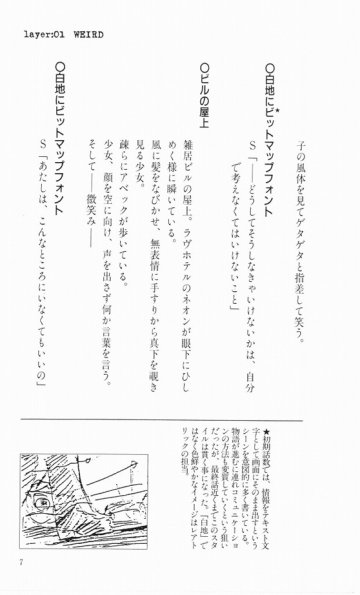 layer:01 WEIRD
子の風体を見てゲタゲタと指差して笑う。
○白地にビットマップフォント★
S「――どうしてそうしなきゃいけないかは、自分
で考えなくてはいけないこと」
○ビルの屋上
雑居ビルの屋上。ラヴホテルのネオンが眼下にひし
めく様に瞬いている。
風に髪をなびかせ、無表情に手すりから真下を覗き
見る少女。
疎らにアベックが歩いている。
少女、顔を空に向け、声を出さず何か言葉を言う。
そして――微笑み――
○白地にビットマップフォント
S「あたしは、こんなところにいなくてもいいの」
★初期話数では、情報をテキスト文
字として画面にそのまま出すという
シーンを意図的に多く書いている。
物語が進むに連れコミュニケーショ
ンの方法も変質していくという狙い
だったが、最終話近くまでこのスタ
イルは貫く事になった。「白地」で
はなく色鮮やかなイメージはレアト
リックの担当。
7